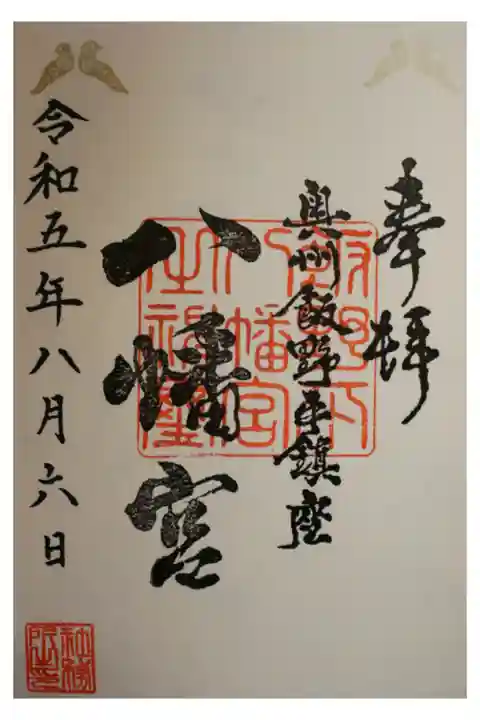 奉拝
奥州飯野平鎮座
八幡宮
令和五年八月六日
飯野八
幡宮
社務所